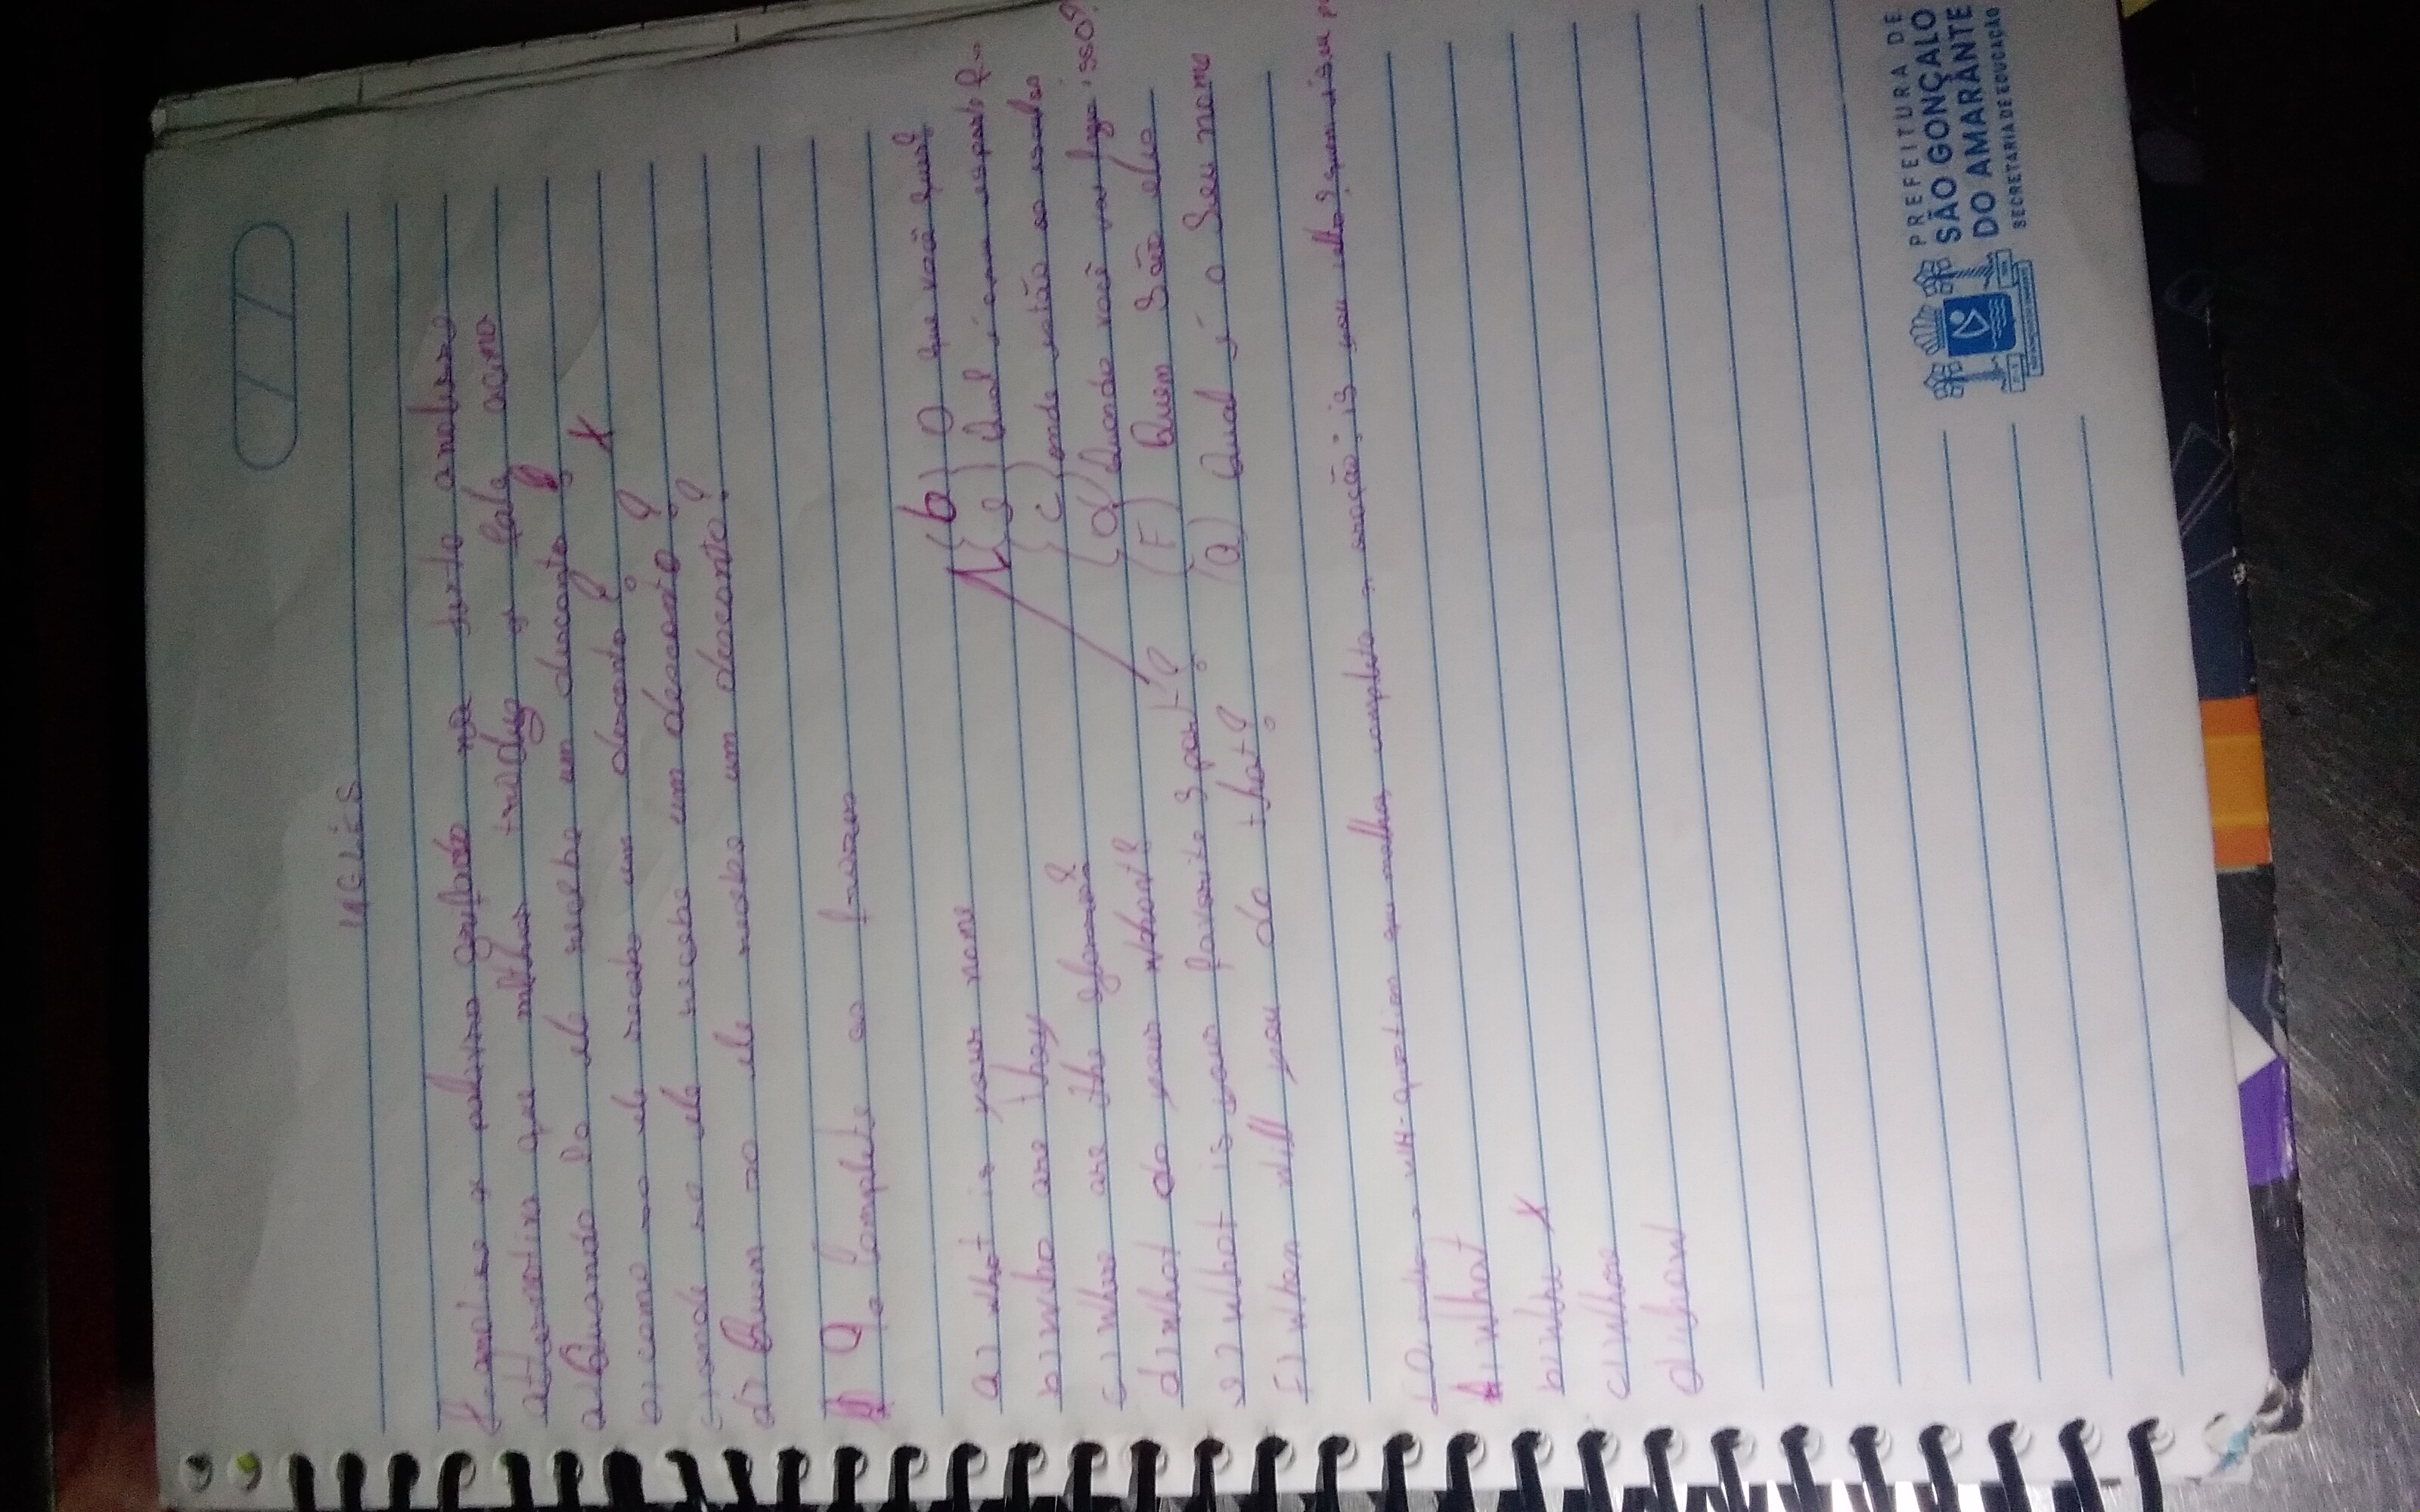 INGLÊS
analise a palavra grifado no texto analisse
alternativa que melhor traduz a fala acima
a) Quando so ele recebe um desconto?
b) como so ele recebe um desconto? X
c) onde so ele recebe um desconto?
d) Quem so ele recebe um desconto?
9. Complete as frases
a) what is your nome
b) who are they
c) Where are the
d) what do your
e) What is your favorite sport?
F) When will you do that?
(b) O que você quer?
(e) Qual é esporte f
(c) onde estão os
(d) Quando você vai isso?
(F) Quem São eles
(a) Qual é o Seu nome
10. a WH-question que melhor completa a oração: is you ? quem é seu
A) What
b) Who X
c) Where
d) how
PREFEITURA DE
SÃO GONÇALO
DO AMARANTE
SECRETARIA DE EDUCAÇÃO